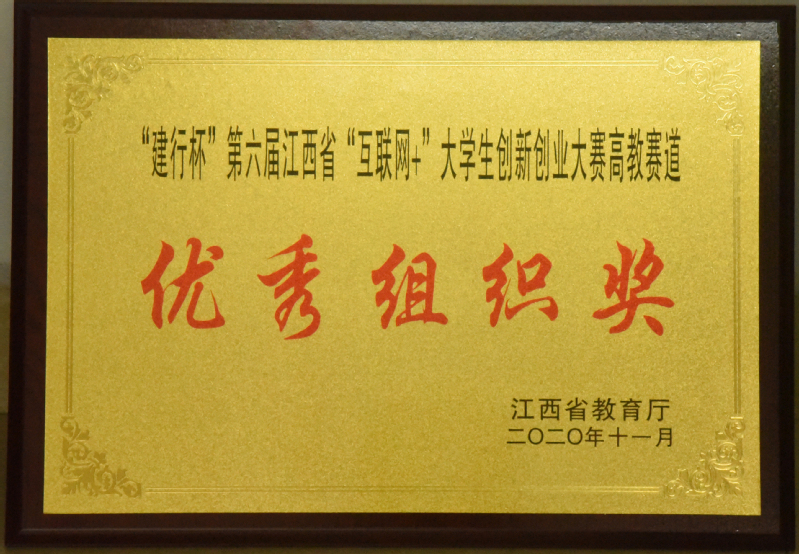 “建行杯”第六届江西省“互联网+”大学生创新创业大赛高教赛道
优秀组织奖
江西省教育厅
二〇二〇年十一月